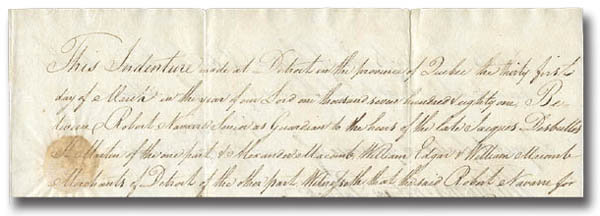 This Indenture made at Detroit in the province of Quebec the thirty first
day of March in the year of our Lord one thousand seven hundred & eighty one, Be-
tween Robert Navarre Senior as Guardian to the heirs of the late Jacques
St Martin of the one part, & Alexander Macomb, William Edgar & William Macomb
Merchants of Detroit of the other part, Witnesseth that the said Robert Navarre for